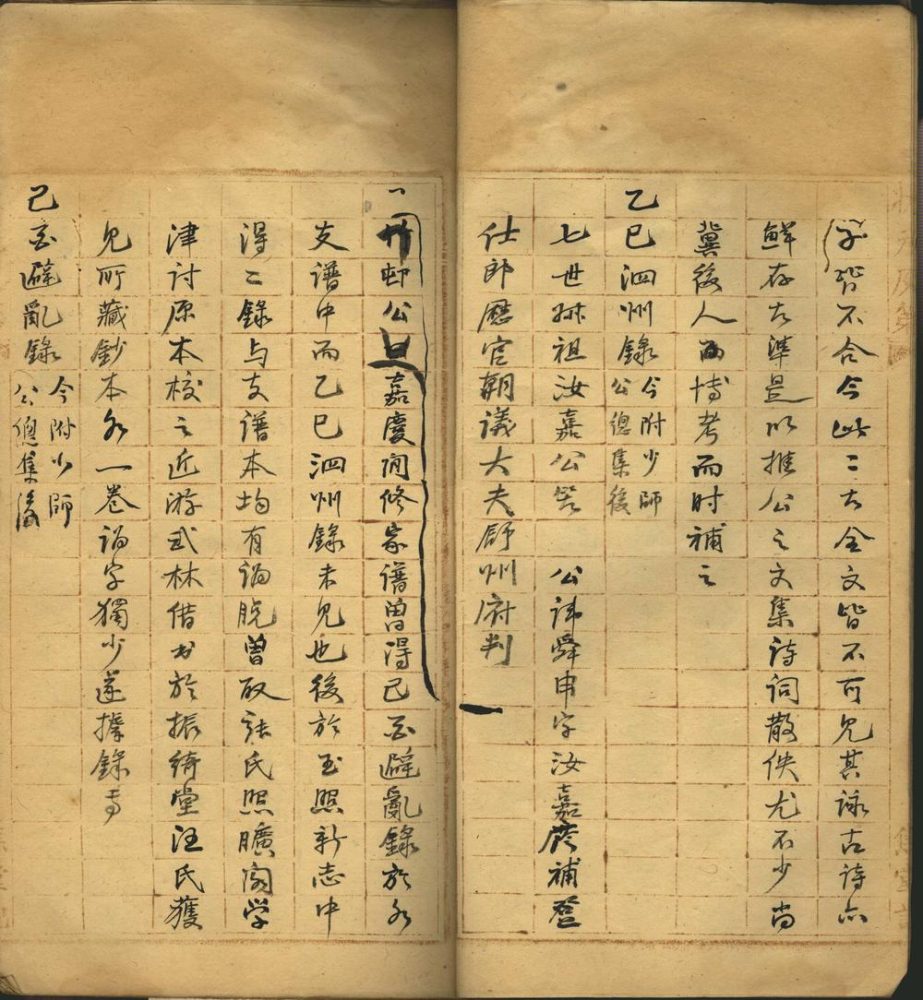 字皆不合今此二古全文皆不可見其詠古詩亦
鮮存古準是以推公之文集詩詞散佚尤不少尚
冀後人博考而时補之
乙巳泗州錄今附少師公總集後
七世叔祖汝嘉公著 公諱舜申字汝嘉廕補登
仕郎歷官朝議大夫舒州府判
邨公曰嘉慶间修家譜曽得己酉避亂錄於外
支譜中而乙巳泗州錄未見也後於玉照新志中
得二錄与支譜本均有譌脱曽取張氏照曠阁学
津讨原本校之近游武林借书於振綺堂汪氏獲
見所藏鈔本外一卷譌字獨少遂據錄焉
己酉避亂錄今附少師公總集後